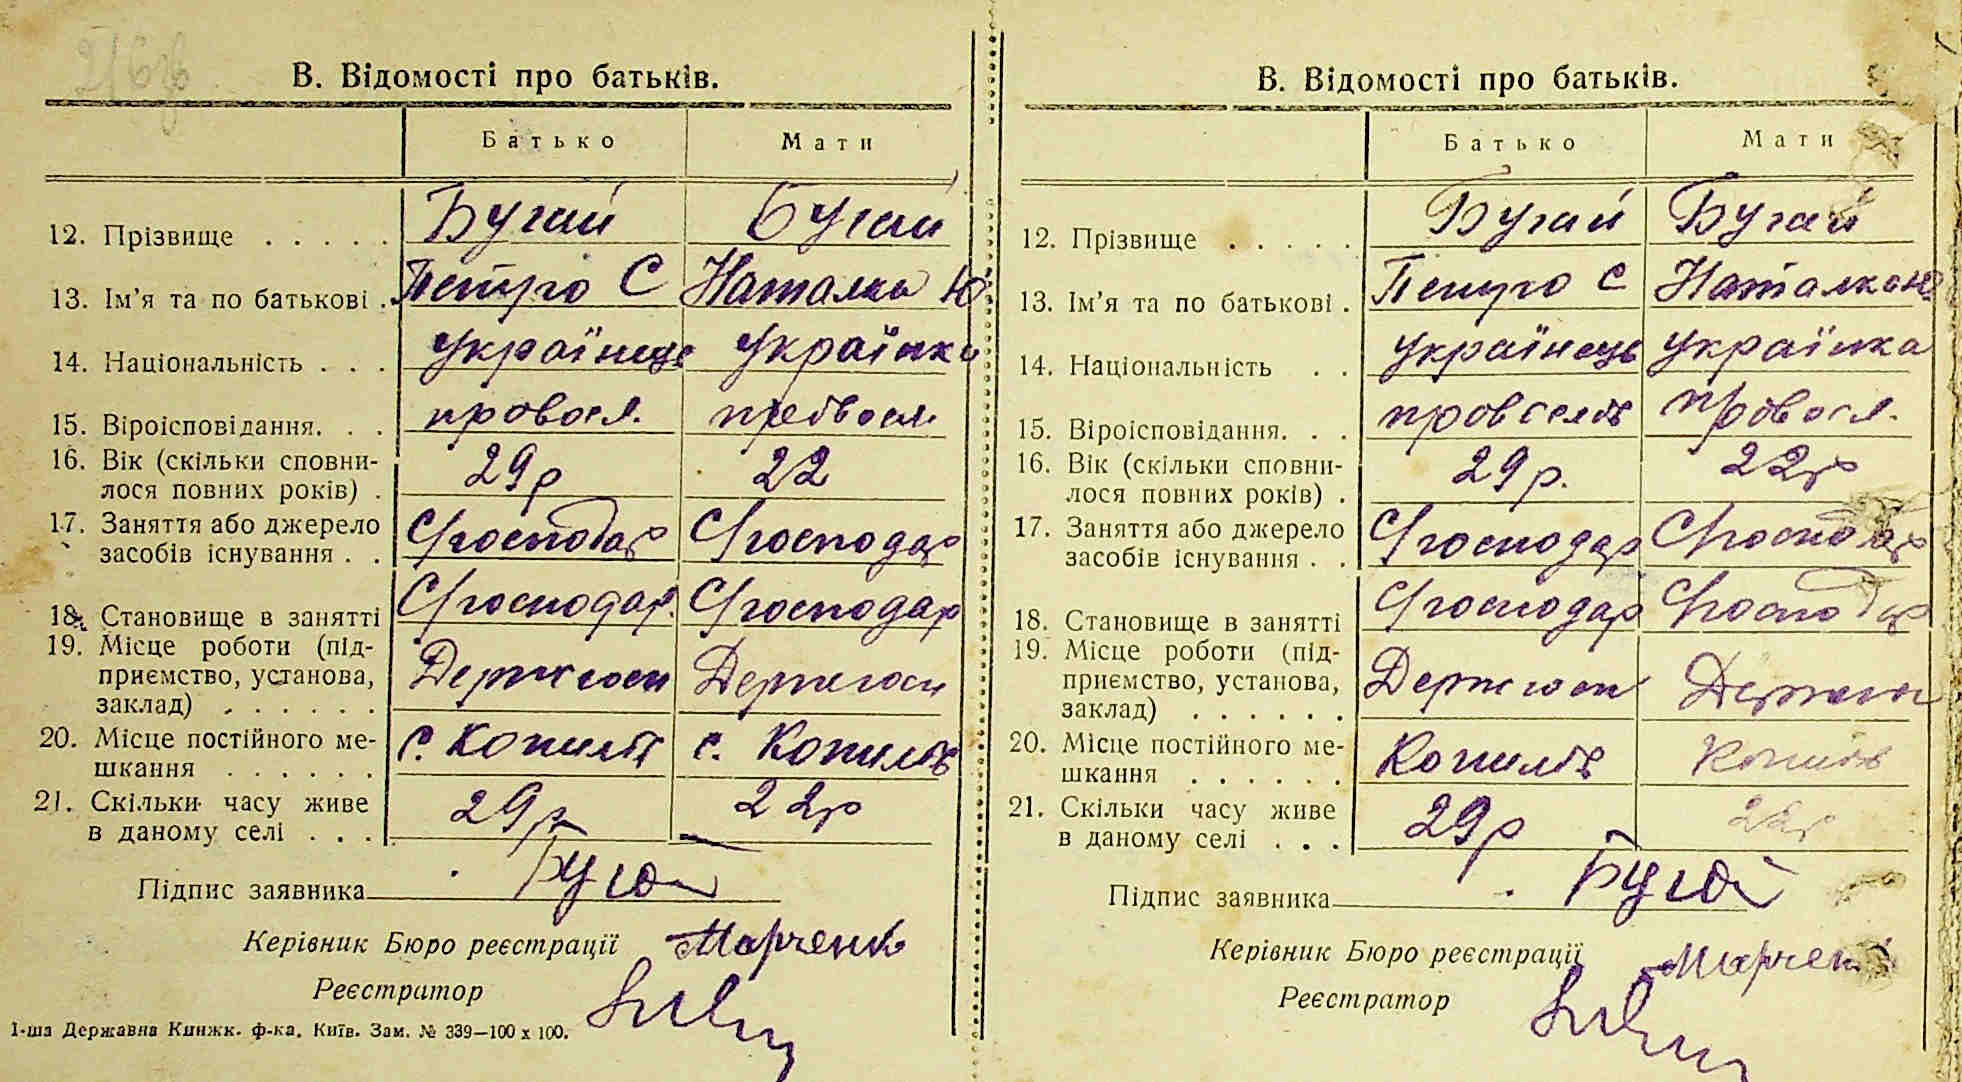 В. Відомості про батьків.
Батько Мати
12. Прізвище . . . . . Бугай Бугай
13. Ім'я та по батькові . Петро С Наталка Ю
14. Національність . . . українець українка
15. Віроісповідання. . . провосл. провосл.
16. Вік (скільки сповни- 
лося повних років) . 29р 22
17. Заняття або джерело
засобів існування . . С/господар С/господар
18. Становище в занятті С/господар. С/господар
19. Місце роботи (під-
приємство, установа,
заклад) . . . . . .
20. Місце постійного ме-
шкання . . . . . . с. Копилів с. Копилів
21. Скільки часу живе
в даному селі . . . 29р 22р
Підпис заявника Бугай
Керівник Бюро реєстрації Марченко
Реєстратор
1-ша Державна Книжк. ф-ка. Київ. Зам. № 339—100 х 100.
В. Відомості про батьків.
Батько Мати
12. Прізвище . . . . . Бугай Бугай
13. Ім'я та по батькові . Петро С Наталка Ю
14. Національність . . українець українка
15. Віроісповідання. . . провослав провосл.
16. Вік (скільки сповни-
лося повних років) . 29р. 22р
17. Заняття або джерело
засобів існування . . С/господар С/господар
18. Становище в занятті С/господар С/господар
19. Місце роботи (під-
приємство, установа,
заклад) . . . . . .
20. Місце постійного ме-
шкання . . . . . . Копилів Копилів
21. Скільки часу живе
в даному селі . . . 29р 22р
Підпис заявника Бугай
Керівник Бюро реєстрації Марченко
Реєстратор